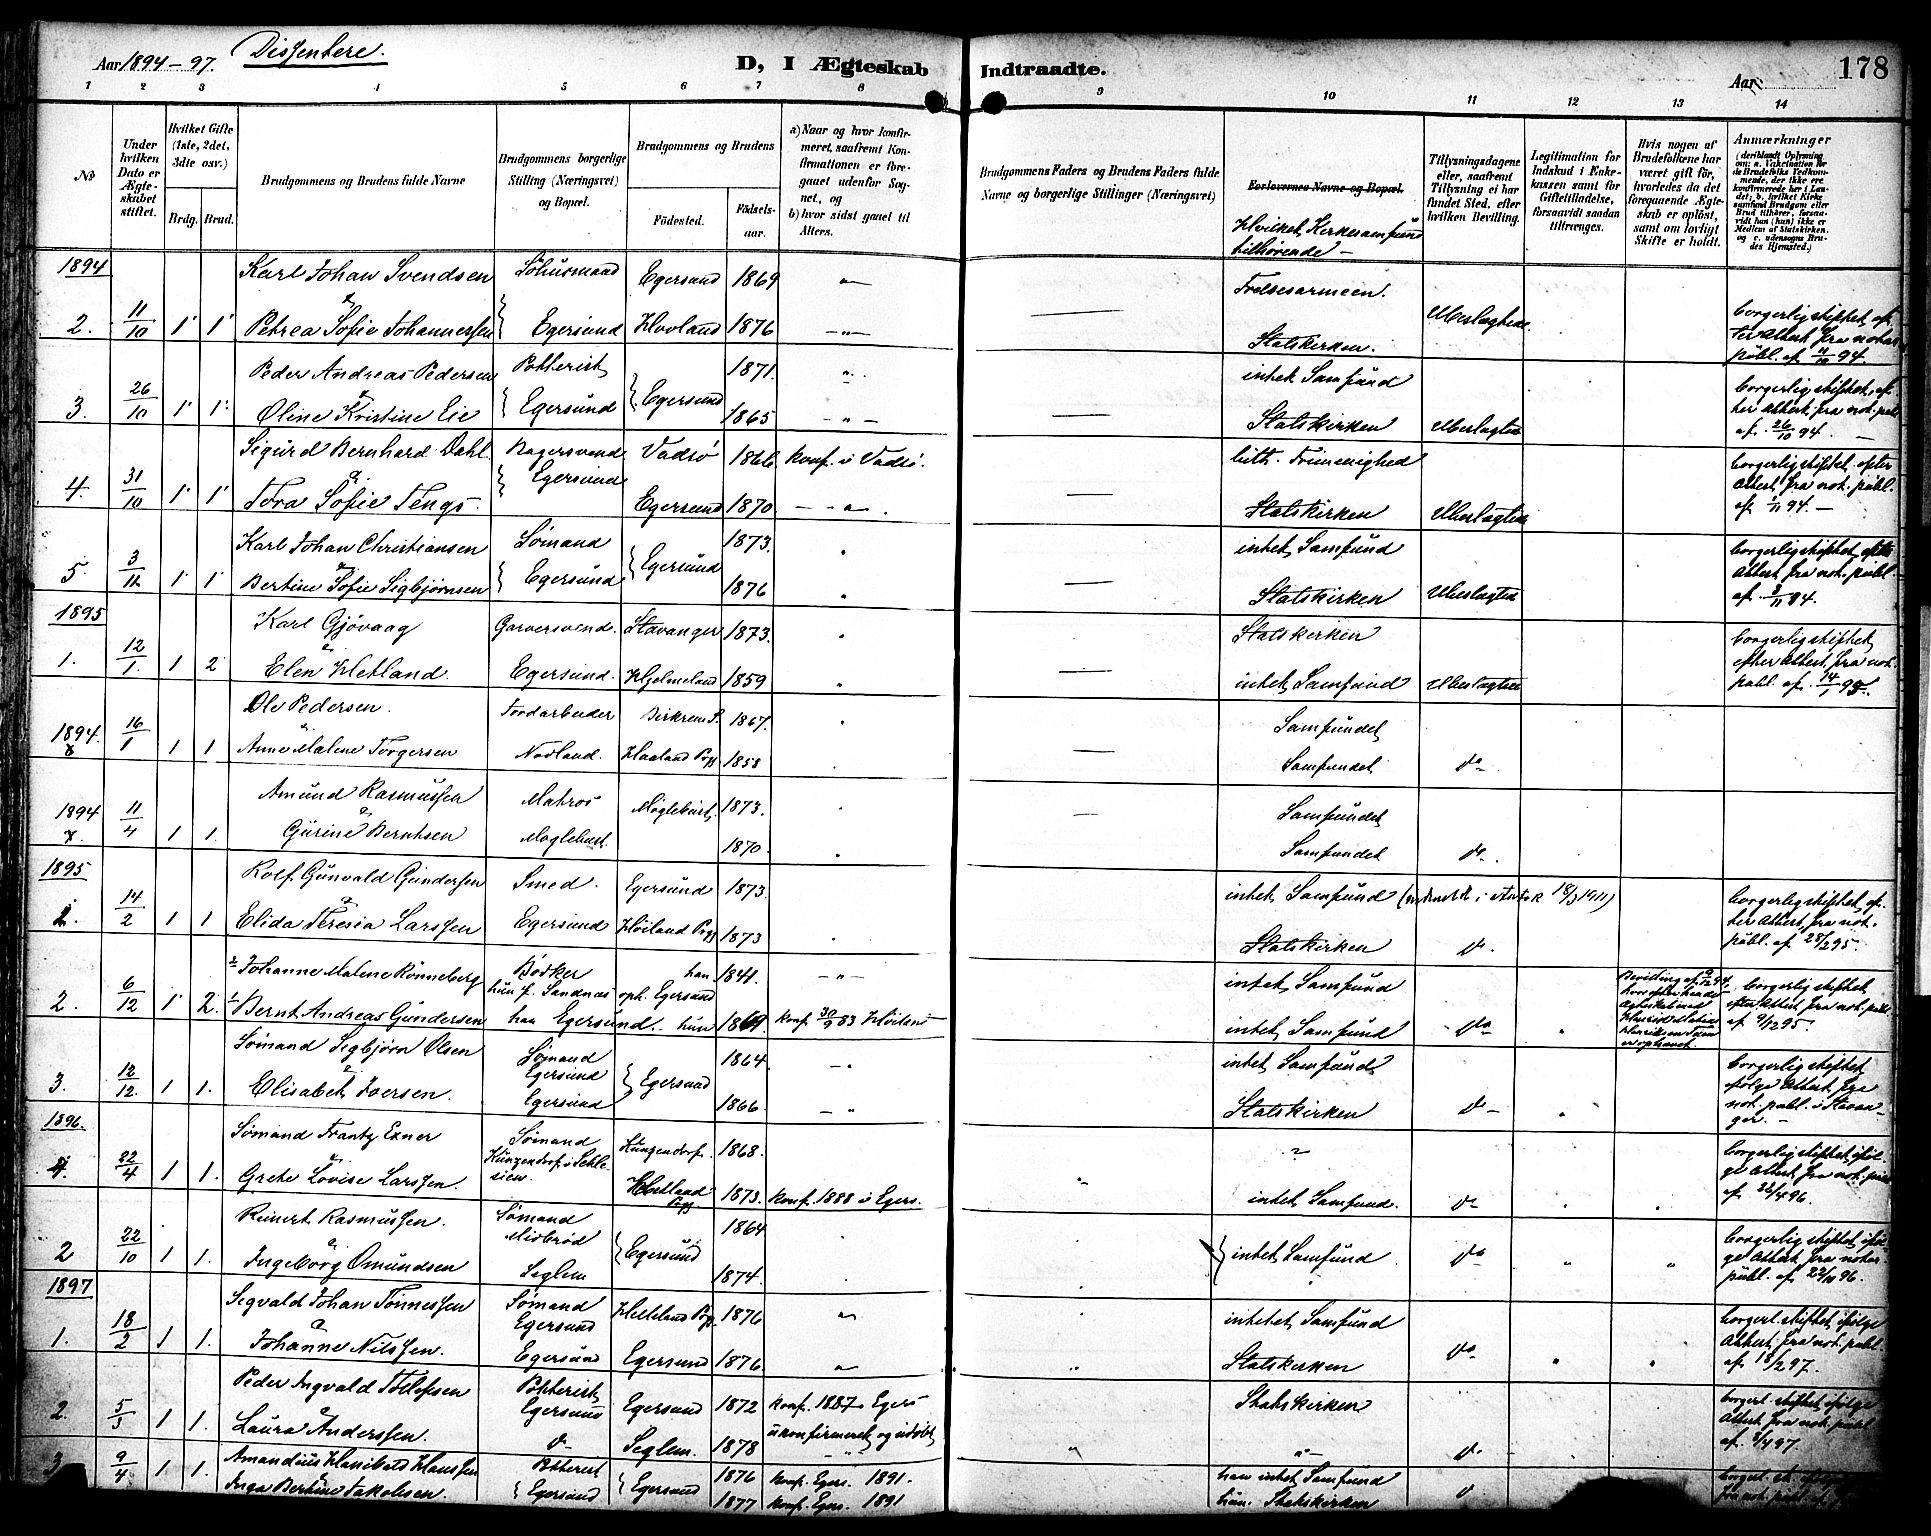 Aar 1894-97. Dissentere.
D, I Ægteskab Indtraadte.
Aar
178
1 2 3 4 5 6 7 8 9 10 11 12 13 14
No
Under hvilken Dato er Ægteskabet stiftet.
Hvilket Gifte (1ste, 2det, 3dte osv.)
Brdg. Brud.
Brudgommens og Brudens fulde Navne
Brudgommens borgerlige Stilling (Næringsvei) og Bopæl.
Brudgommens og Brudens
Fødested. Fødsels-aar.
a) Naar og hvor konfirmeret, saafremt Konfirmationen er foregaaet udenfor Sognet, og
b) hvor sidst gaaet til Alters.
Brudgommens Faders og Brudens Faders fulde Navne og borgerlige Stillinger (Næringsvei)
Forlovernes Navne og Bopæl.
Hvilket Kirkesamfund tilhørende -
Tillysningsdagene eller, saafremt Tillysning ei har fundet Sted, efter hvilken Bevilling.
Legitimation for Indskud i Enkekassen samt for Giftetilladelse, forsaavidt saadan tiltrænges.
Hvis nogen af Brudefolkene har været gift før, hvorledes da det foregaaende Ægteskab er opløst, samt om lovligt Skifte er holdt.
Anmærkninger
(deriblandt Oplysning om: a. Vakcination for Vedkommende, der ikke ere konfirmerede her i Landet; b. hvilket Kirkesamfund Brudgom eller Brud tilhører, forsaavidt han (hun) ikke er Medlem af Statskirken, og c. udensogns Brudes Hjemsted.)
1894
Karl Johan Svendsen Egersund 1869 Frelsesarmeen.
2. 11/10 1 1 Petrea Sofie Johannessen Egersund Hovland 1876 Statskirken. Ubeslægtede. borgerlig stiftet efter Attest fra notar. publ. af 11/10 94.
Peder Andreas Pedersen Potterist 1871. intet Samfund
3. 26/10 1 1 Oline Kristine Eie Egersund Egersund 1865 Statskirken Ubeslægtede borgerlig stiftet, efter Attest, fra not. publ. af. 26/10 94.
Sigurd Bernhard Dahl. Bagersvend Vadsø 1866 konf. i Vadsø. luth. Frimenighed
4. 31/10 1 1 Tora Sofie Tengs. Egersund Egersund 1870 Statskirken Ubeslægtede borgerlig stiftet, efter Attest, fra not. publ. af 1/11 94.
Karl Johan Christiansen Sømand 1873. intet Samfund
5. 3/11 1 1 Bertine Sofie Sigbjørnsen Egersund Egersund 1876 Statskirken Ubeslægtede borgerlig stiftet, efter Attest, fra not. publ. af 3/11 94.
1895
Karl Gjøvaag Garversvend. Stavanger 1873. Statskirken
1. 12/1. 1 2 Elen Hetland. Egersund. Hjelmeland 1859 intet Samfund Ubeslægtede borgerlig stiftet, efter Attest, fra not. publ. af. 14/1 95.
Ole Pedersen. Jordarbeider Birkrem S. 1867. Samfundet
1894. 16/1 1 1 Anne Malene Torgersen Nodland. Haaland Pgj 1858 Samfundet do
Amund Rasmussen Matros Møglebust, 1873. Samfundet
1894 11/4 1 1. Gurine Berntsen Møglebust. 1870. Samfundet do.
1895
Rolf Gunvald Gundersen Smed. Egersund 1873 intet Samfund 18/3 1911)
2. 14/2 1 1 Elida Teresia Larssen Egersund Høiland Pgj 1873 Statskirken do. borgerlig stiftet, efter Attest, fra not. publ. af 28/2 95.
Johanne Malene Rønneberg Bødker hun f. Sandnæs han oph. Egersund 1841. intet Samfund
2. 6/12 1 2. Bernt Andreas Gundersen han Egersund. hun 1869 konf. 30/9 83 Høiland intet Samfund do borgerlig stiftet, efter Attest, fra not. publ. af 9/12 95.
Sømand Segbjørn Olsen Sømand Egersund 1864 intet Samfund
3. 12/12. 1 1. Elisabet Iversen. Egersund Egersund 1866 Statskirken do borgerlig stiftet ifølge Attest fra not. publ. i Stavanger.
1896.
Sømand Frantz Exner Sømand Kunzendorf i Schlesien. Kunzendorf. 1868.
22/4 1 1. Grete Lovise Larssen. Hetland Pgj. 1873. konf. 1888 i Egers. intet Samfund. do borgerlig stiftet, ifølge Attest fra not. publ af 22/4 96.
Reinert Rasmussen. Sømand Midbrød 1864
2 22/10 1 1. Ingeborg Omundsen Seglem Egersund 1874. intet Samfund do borgerlig stiftet, ifølge Attest, fra notar. publ. af 22/10 96.
1897
Segvald Johan Tønnessen Sømand Egersund Helleland Pgj. 1876 intetet Samfund
1. 18/2 1 1. Johanne Nilssen. Egersund Egersund 1876. Statskirken do borgerl. stiftet, ifølge Attest, fra not. publ. af 18/2 97.
Peder Ingvald Tollefsen Potterist, Egersund Egersund 1872 konf. 1887. Egers Statskirken
2. 5/5 1 1. Laura Anderssen. do Seglem. 1878 ukonfirmeret og udøbt do borgerl. stiftet, ifølge Attest fra not. publ. af 5/4 97.
3 9/4 1 1. Amandius Hanibal Hanssen Potterist 1876 konf. Egers. 1891. han intet Samfund
Inga Bertine Jakobsen. Egersund Egersund 1877 konf. Egers. 1891 hun. Statskirken do